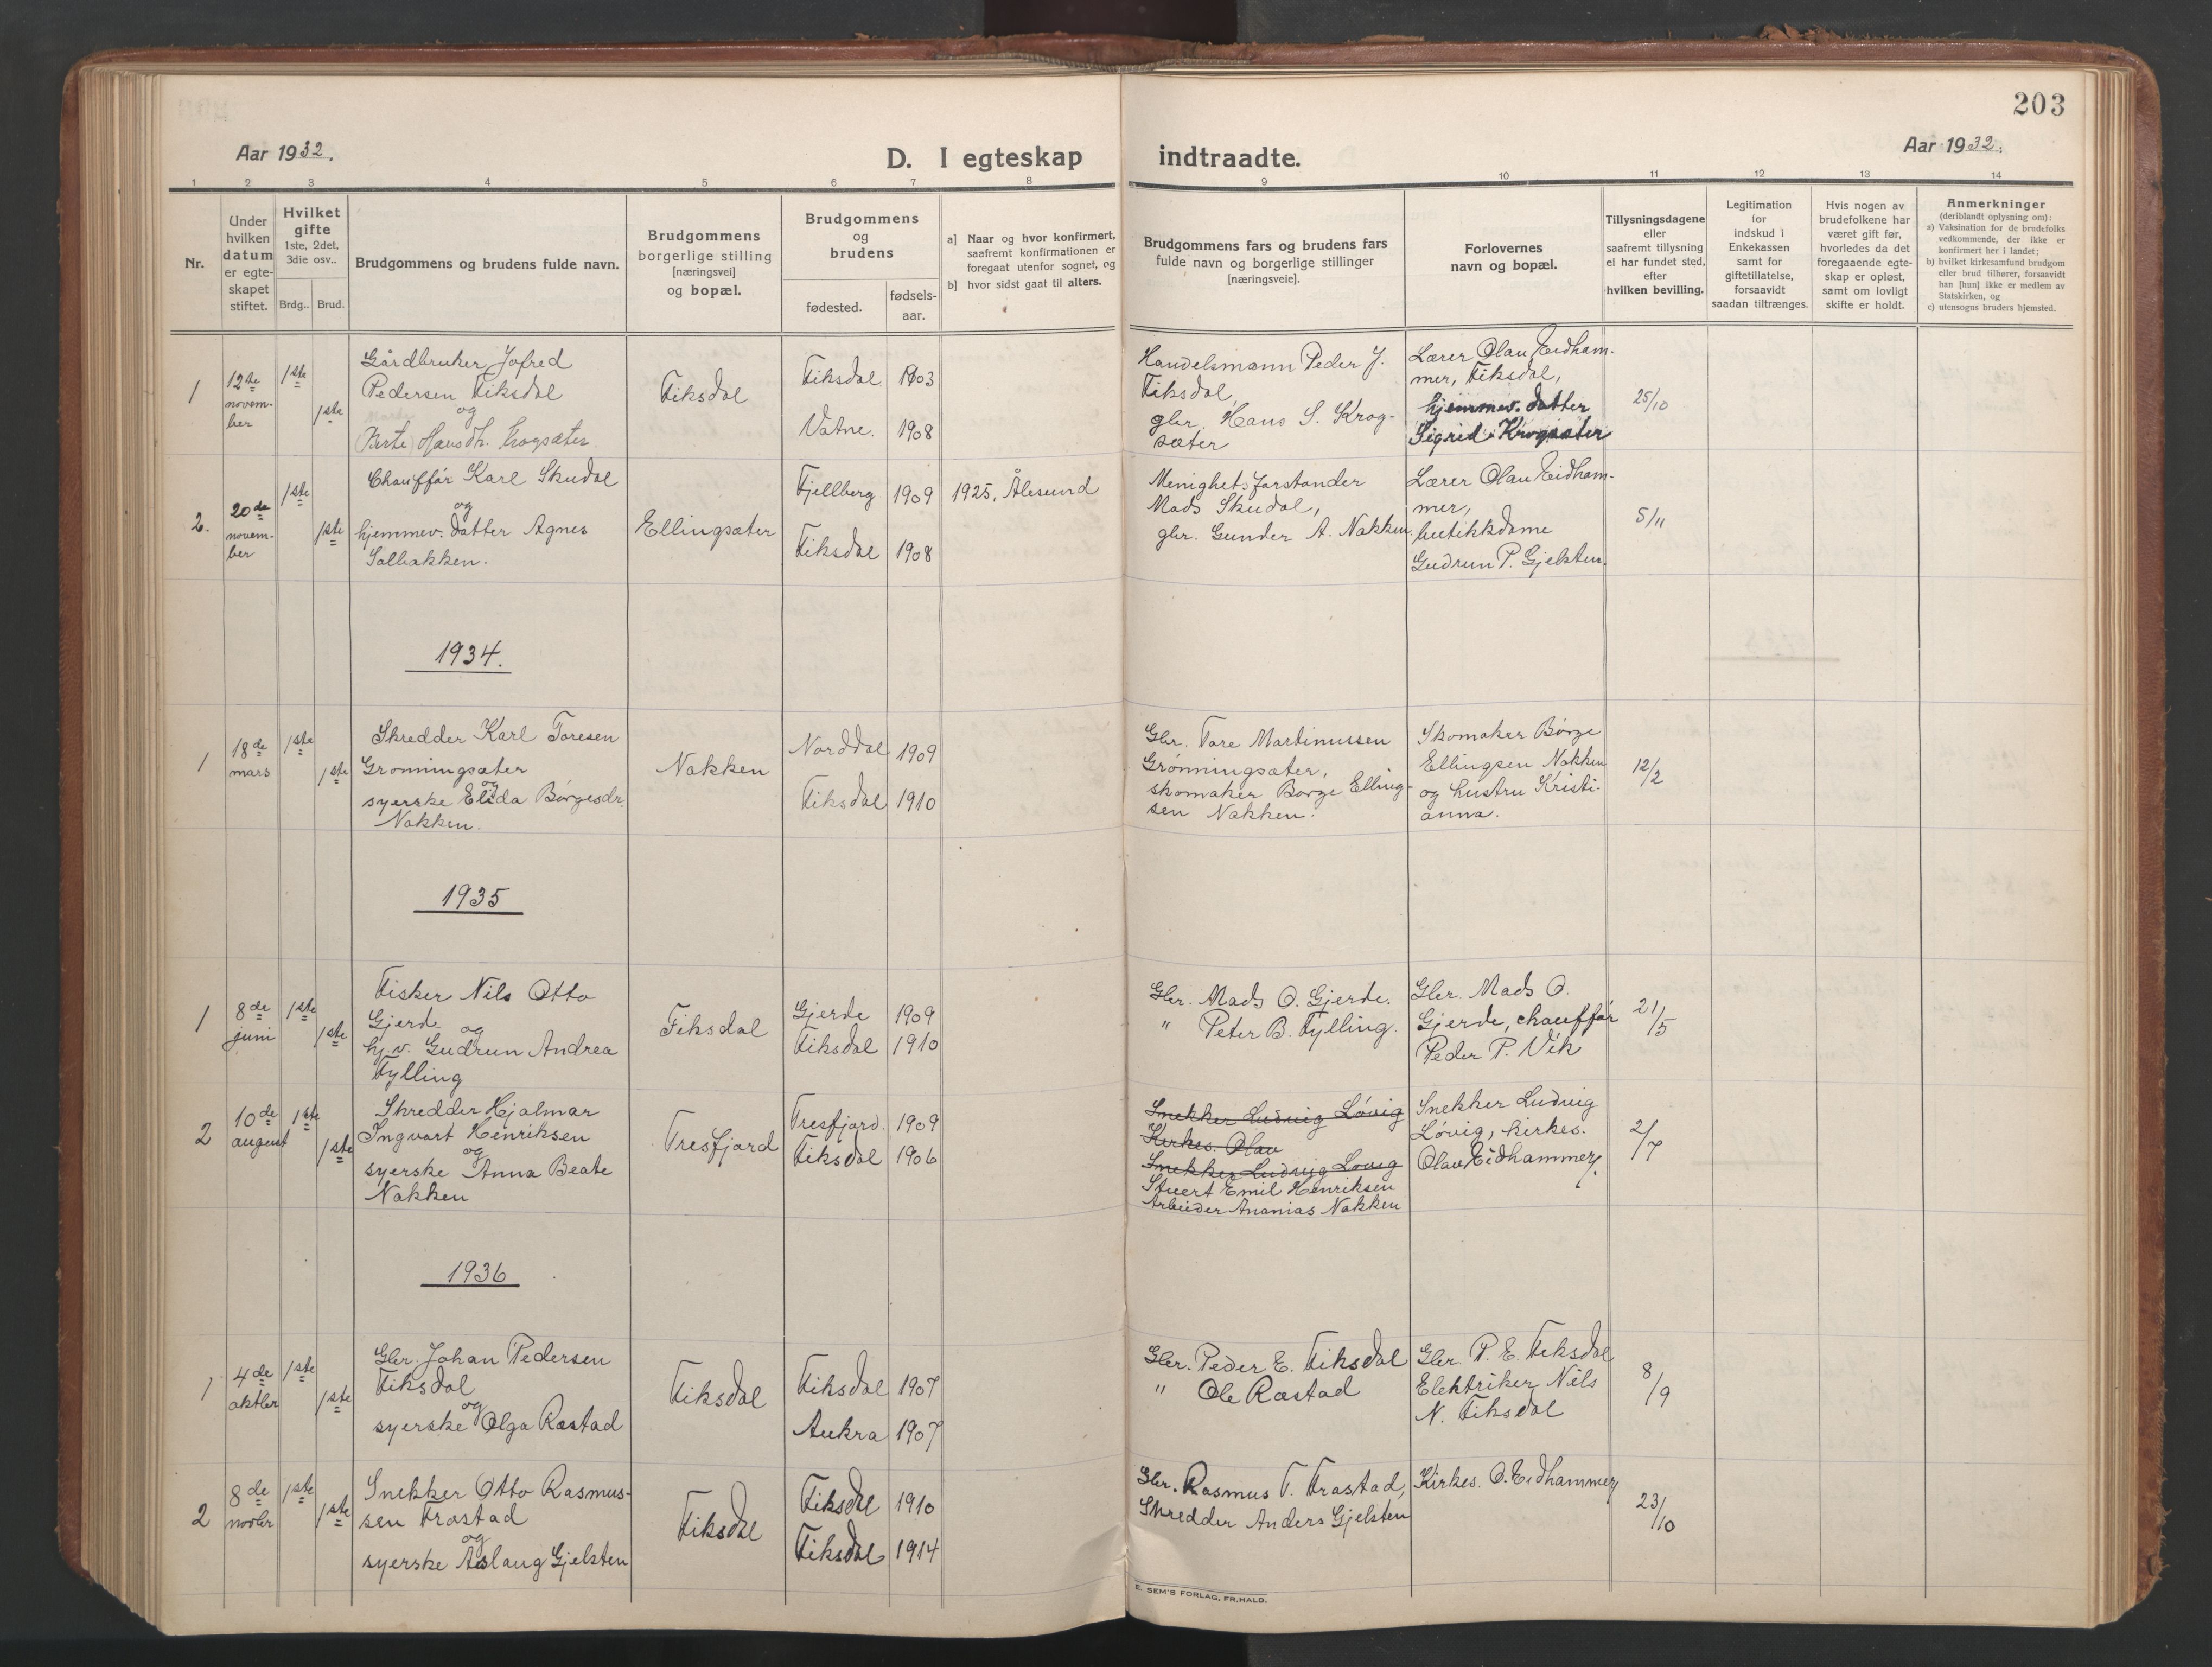 203
Aar 1932.
D. I egteskap indtraadte.
Aar 1932.
1 2 3 4 5 6 7 8 9 10 11 12 13 14
Nr.
Under
hvilken
datum
er egte-
skapet
stiftet.
Hvilket
gifte
1ste, 2det,
3die osv..
Brdg.. Brud.
Brudgommens og brudens fulde navn.
Brudgommens
borgerlige stilling
[næringsvei]
og bopæl.
Brudgommens
og
brudens
fødested.
fødsels-
aar.
a] Naar og hvor konfirmert,
saafremt konfirmationen er
foregaat utenfor sognet, og
b] hvor sidst gaat til alters.
Brudgommens fars og brudens fars
fulde navn og borgerlige stillinger
[næringsveie].
Forlovernes
navn og bopæl.
Tillysningsdagene
eller
saafremt tillysning
ei har fundet sted,
efter
hvilken bevilling.
Legitimation
for
indskud i
Enkekassen
samt for
giftetillatelse,
forsaavidt
saadan tiltrænges.
Hvis nogen av
brudefolkene har
været gift før,
hvorledes da det
foregaaende egte-
skap er opløst,
samt om lovligt
skifte er holdt.
Anmerkninger
(deriblandt oplysning om):
a) Vaksination for de brudefolks
vedkommende, der ikke er
konfirmert her i landet;
b) hvilket kirkesamfund brudgom
eller brud tilhører, forsaavidt
han [hun] ikke er medlem av
Statskirken, og
c) utensogns bruders hjemsted.
1
12te
novem-
ber
1ste
1ste
Gårdbruker Jofred
Pedersen Fiksdal
og
Berte Hansdt. Krogsæter
Fiksdal
Fiksdal. 1903
Vatne. 1908
Handelsmann Peder J.
Fiksdal,
gbr. Hans S. Krog-
sæter
Lærer Olau Eidham-
mer, Fiksdal,
hjemmev. datter
Sigrid Krogsæter
25/10
2.
20de
novem-
ber
1ste
1ste
Chauffør Karl Skudal
og
hjemmev. datter Agnes
Solbakken.
Ellingsæter
Fjellberg 1909
Fiksdal 1908
1925, Ålesund
Menighetsforstander
Mads Skudal,
gbr. Gunder A. Nakken.
Lærer Olau Eidham-
mer,
butikkdame
Gudrun P. Gjelsten.
5/11
1934.
1
18de
mars
1ste
1ste
Skredder Karl Toresen
Grønningsæter
og
syerske Elida Børgesdr.
Nakken.
Nakken
Norddal 1909
Fiksdal 1910
Gbr. Tore Martinussen
Grønningsæter,
skomaker Børge Elling-
sen Nakken.
Skomaker Børge
Ellingsen Nakken
og hustru Kristi-
anna.
12/2
1935
1
8de
juni
1ste
1ste
Fisker Nils Otto
Gjerde
og
hj.v. Gudrun Andrea
Fylling
Fiksdal
Gjerde 1909
Fiksdal 1910
Gbr. Mads O. Gjerde.
" Peter B. Fylling.
Gbr. Mads O.
Gjerde, chauffør
Peder P. Vik
21/5
2
10de
august
1ste
1ste
Skredder Hjalmar
Ingvart Henriksen
og
syerske Anna Beate
Nakken
Tresfjord
Tresfjord. 1909
Fiksdal 1906
Snekker Ludvig Løvig
Kirkes. Olau
Snekker Ludvig Løvig
Stuert Emil Henriksen
Arbeider Ananias Nakken
Snekker Ludvig
Løvig, kirkes.
Olau Eidhammer.
2/7
1936
1
4de
oktbr
1ste
1ste
Gbr. Johan Pedersen
Fiksdal
og
syerske Olga Røstad
Fiksdal
Fiksdal 1907
Aukra 1907
Gbr. Peder E. Fiksdal
" Ole Røstad
Gbr. P. E. Fiksdal
Elektriker Nils
N. Fiksdal
8/9
2
8de
novbr
1ste
1ste
Snekker Otto Rasmus-
sen Frostad
og
syerske Aslaug Gjelsten
Fiksdal
Fiksdal 1910
Fiksdal 1914
Gbr. Rasmus T. Frostad,
Skredder Anders Gjelsten
Kirkes. O. Eidhammer
23/10
E. SEM'S FORLAG, FR.HALD.